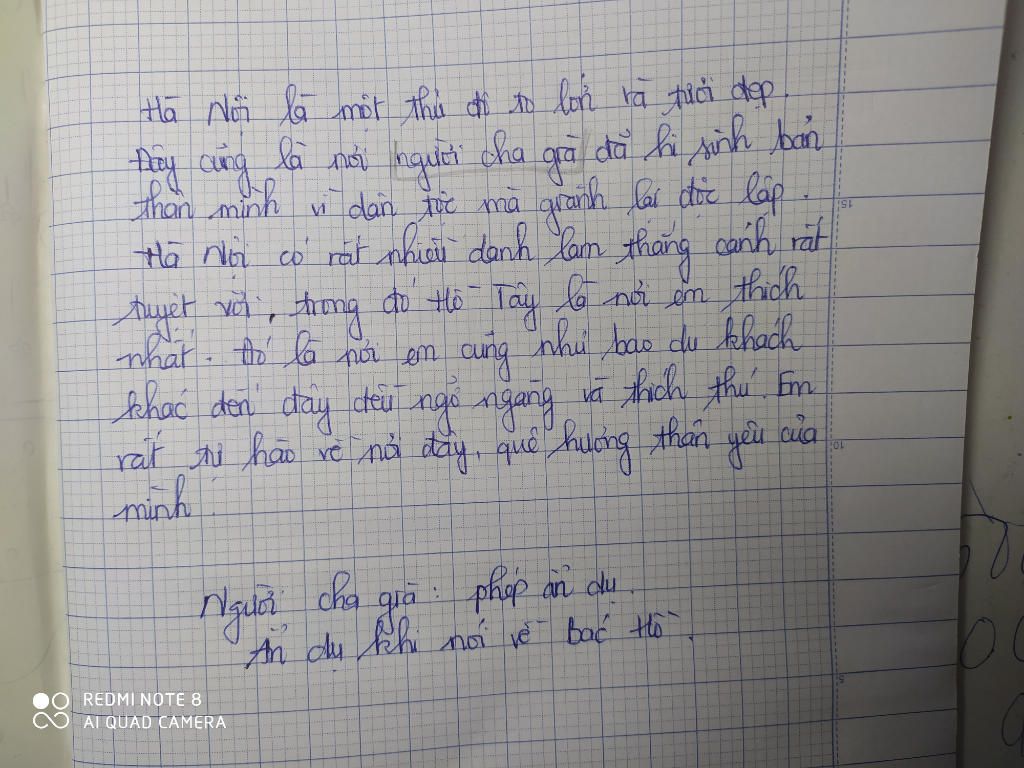 Hà Nội là một thủ đô to lớn và tươi đẹp.
Đây cũng là nơi người cha già đã hi sinh bản
thân mình vì dân tộc mà giành lại độc lập.
Hà Nội có rất nhiều danh lam thắng cảnh rất
tuyệt vời, trong đó Hồ Tây là nơi em thích
nhất. Đó là nơi em cũng như bao du khách
khác đến đây đều ngỡ ngàng và thích thú. Em
rất tự hào về nơi đây, quê hương thân yêu của
mình.
Người cha già: phép ẩn dụ.
Ẩn dụ khi nói về bác Hồ.
15
10
5
REDMI NOTE 8
AI QUAD CAMERA